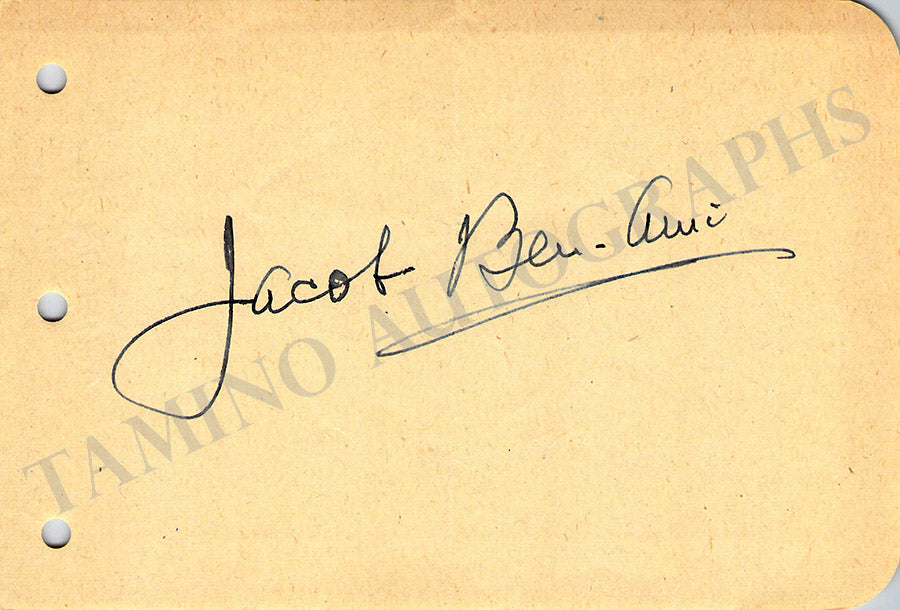 Jacob Ben-Ami
TAMINO AUTOGRAPHS